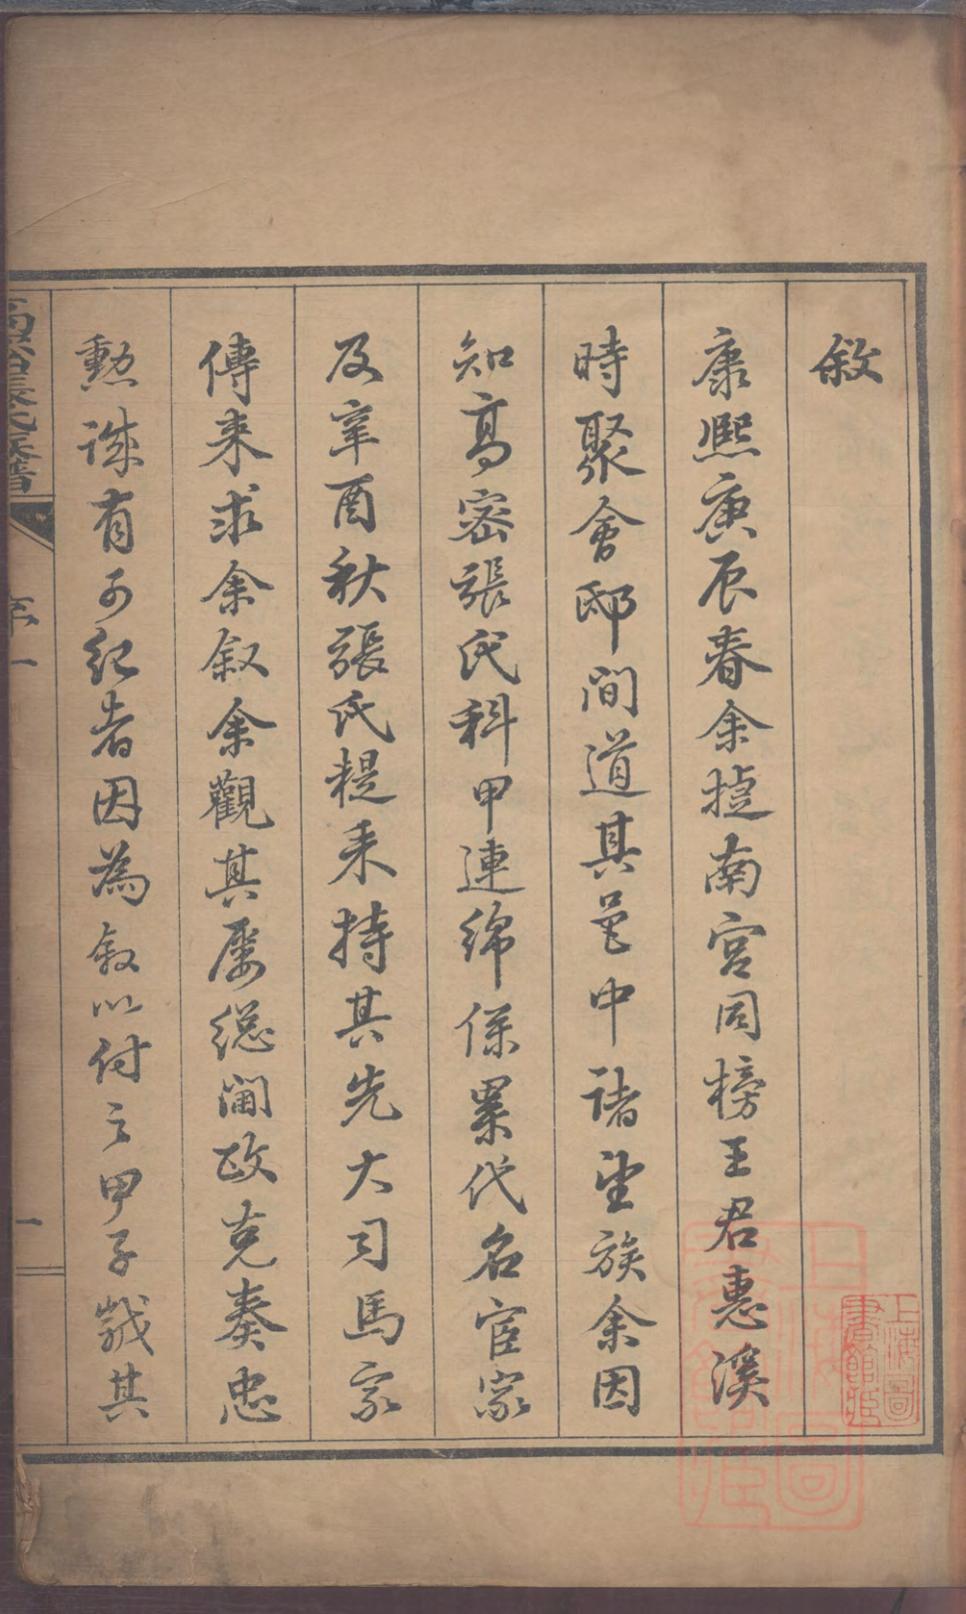 敘
康熙庚辰春余捷南宮同榜王君惠溪
時聚會邸間道其邑中諸望族余因
知高密張氏科甲連綿係累代名宦家
及辛酉秋張氏提耒持其先大司馬家
傳来求余叙余觀其屡総閫政克奏忠
勲誅有可紀者因為叙以付之甲子歲其
張氏族譜
序一
一
上海圖書館藏
上海圖書館藏